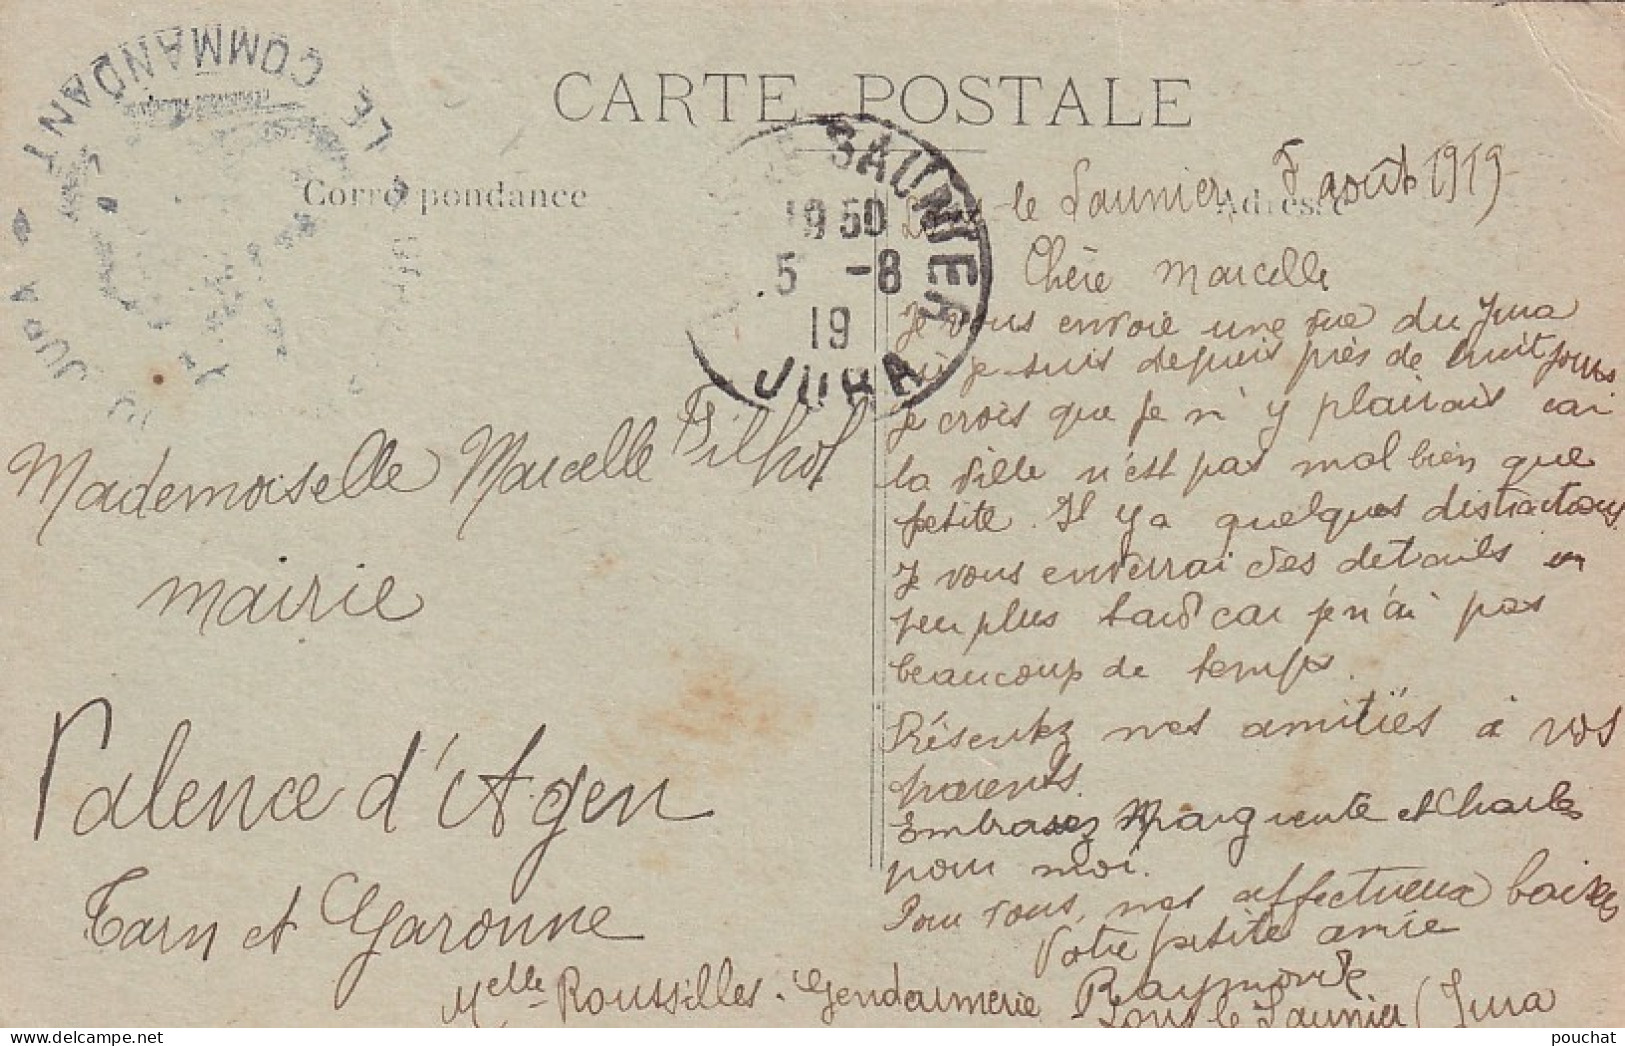 CARTE POSTALE
Correspondance
Adresse
LE COMMANDANT
JURA
SAUNIER
19 50
5 -8
19
JURA
Lons-le Saunier 5 août 1919
Chère Marcelle
Je vous envoie une vue du Jura
où je suis depuis près de huit jours
je crois que je m'y plairais car
la ville n'est pas mal bien que
petite. Il y a quelques distractions
Je vous enverrai des details un
peu plus tard car je n'ai pas
beaucoup de temps.
Présentez mes amitiés à vos
parents.
Embrasez Marguerite et Charles
pour moi.
Pour vous, mes affectueux baisers
Votre petite amie
Raymonde
Mademoiselle Marcelle Filhol
mairie
Valence d'Agen
Tarn et Garonne
Melle Roussilles. Gendarmerie Lons le Saunier (Jura
pouchat